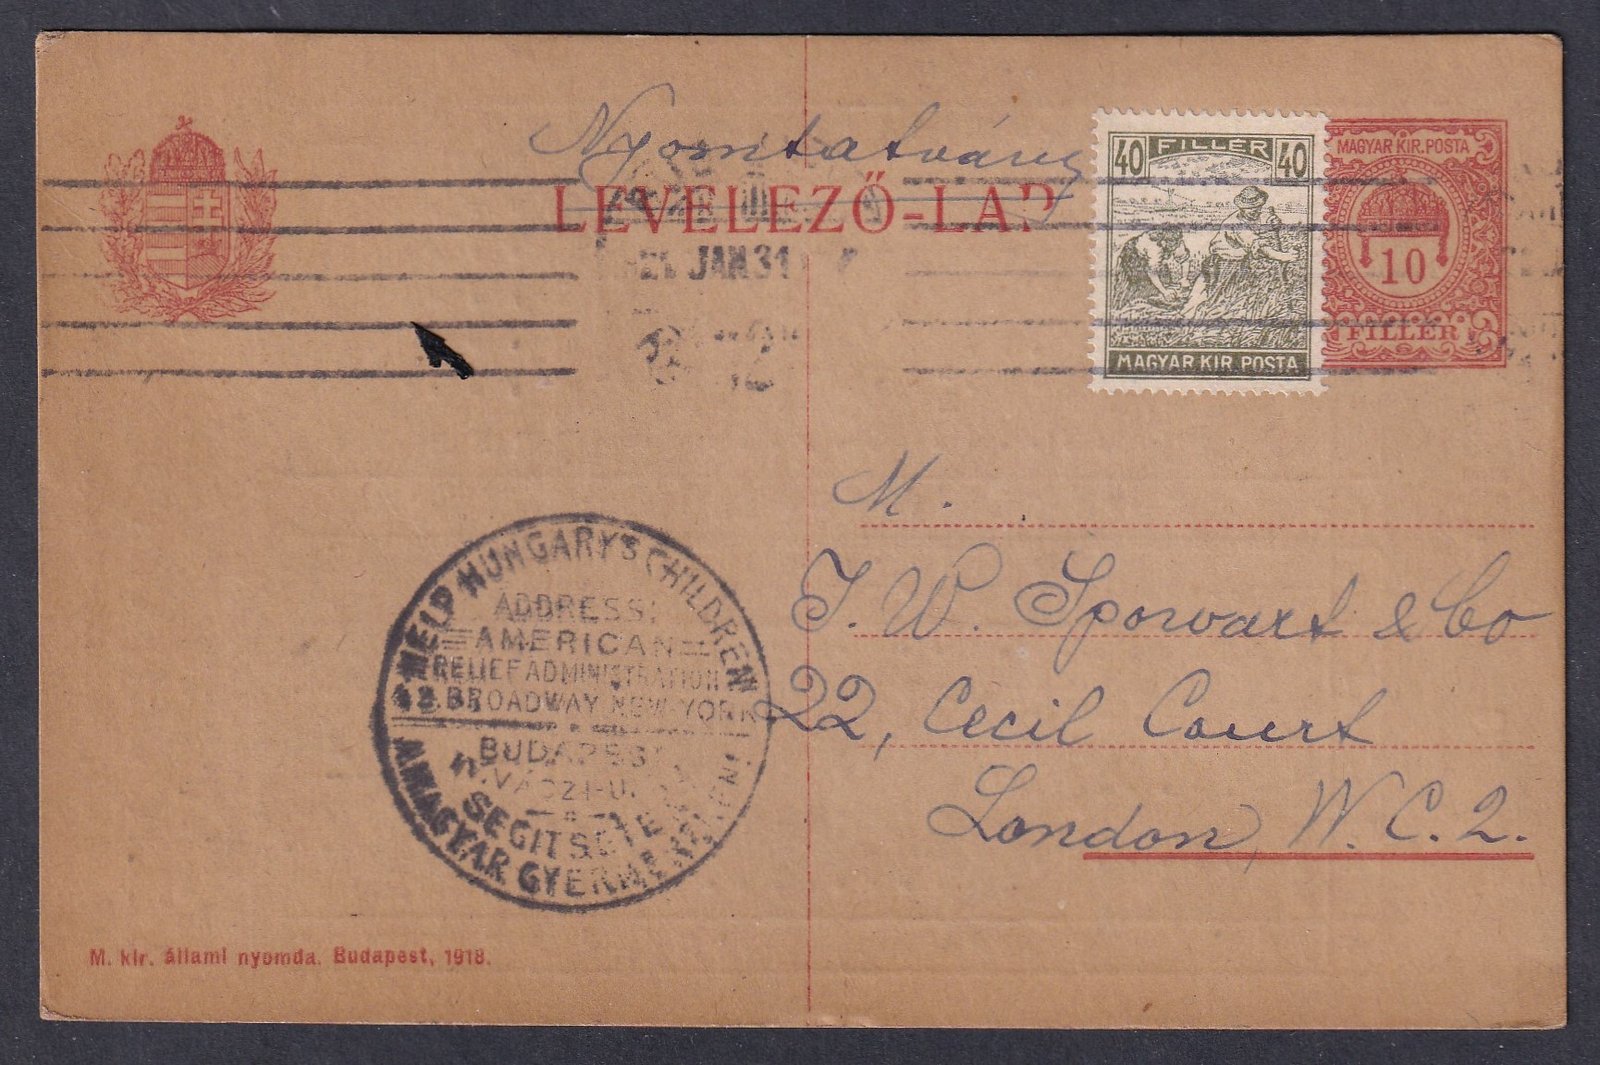 Nyomtatvány
LEVELEZŐ-LAP
40 FILLÉR 40
MAGYAR KIR. POSTA
MAGYAR KIR. POSTA
10
FILLÉR
921 JAN 31
M.
J. W. Sporvart & Co
22, Cecil Court
London, W.C.2.
HELP HUNGARY'S CHILDREN
ADDRESS:
AMERICAN
RELIEF ADMINISTRATION
42. BROADWAY NEW-YORK
BUDAPEST
VÁCZI-U.
SEGITSETEK
A MAGYAR GYERMEKEKEN!
M. kir. állami nyomda. Budapest, 1918.